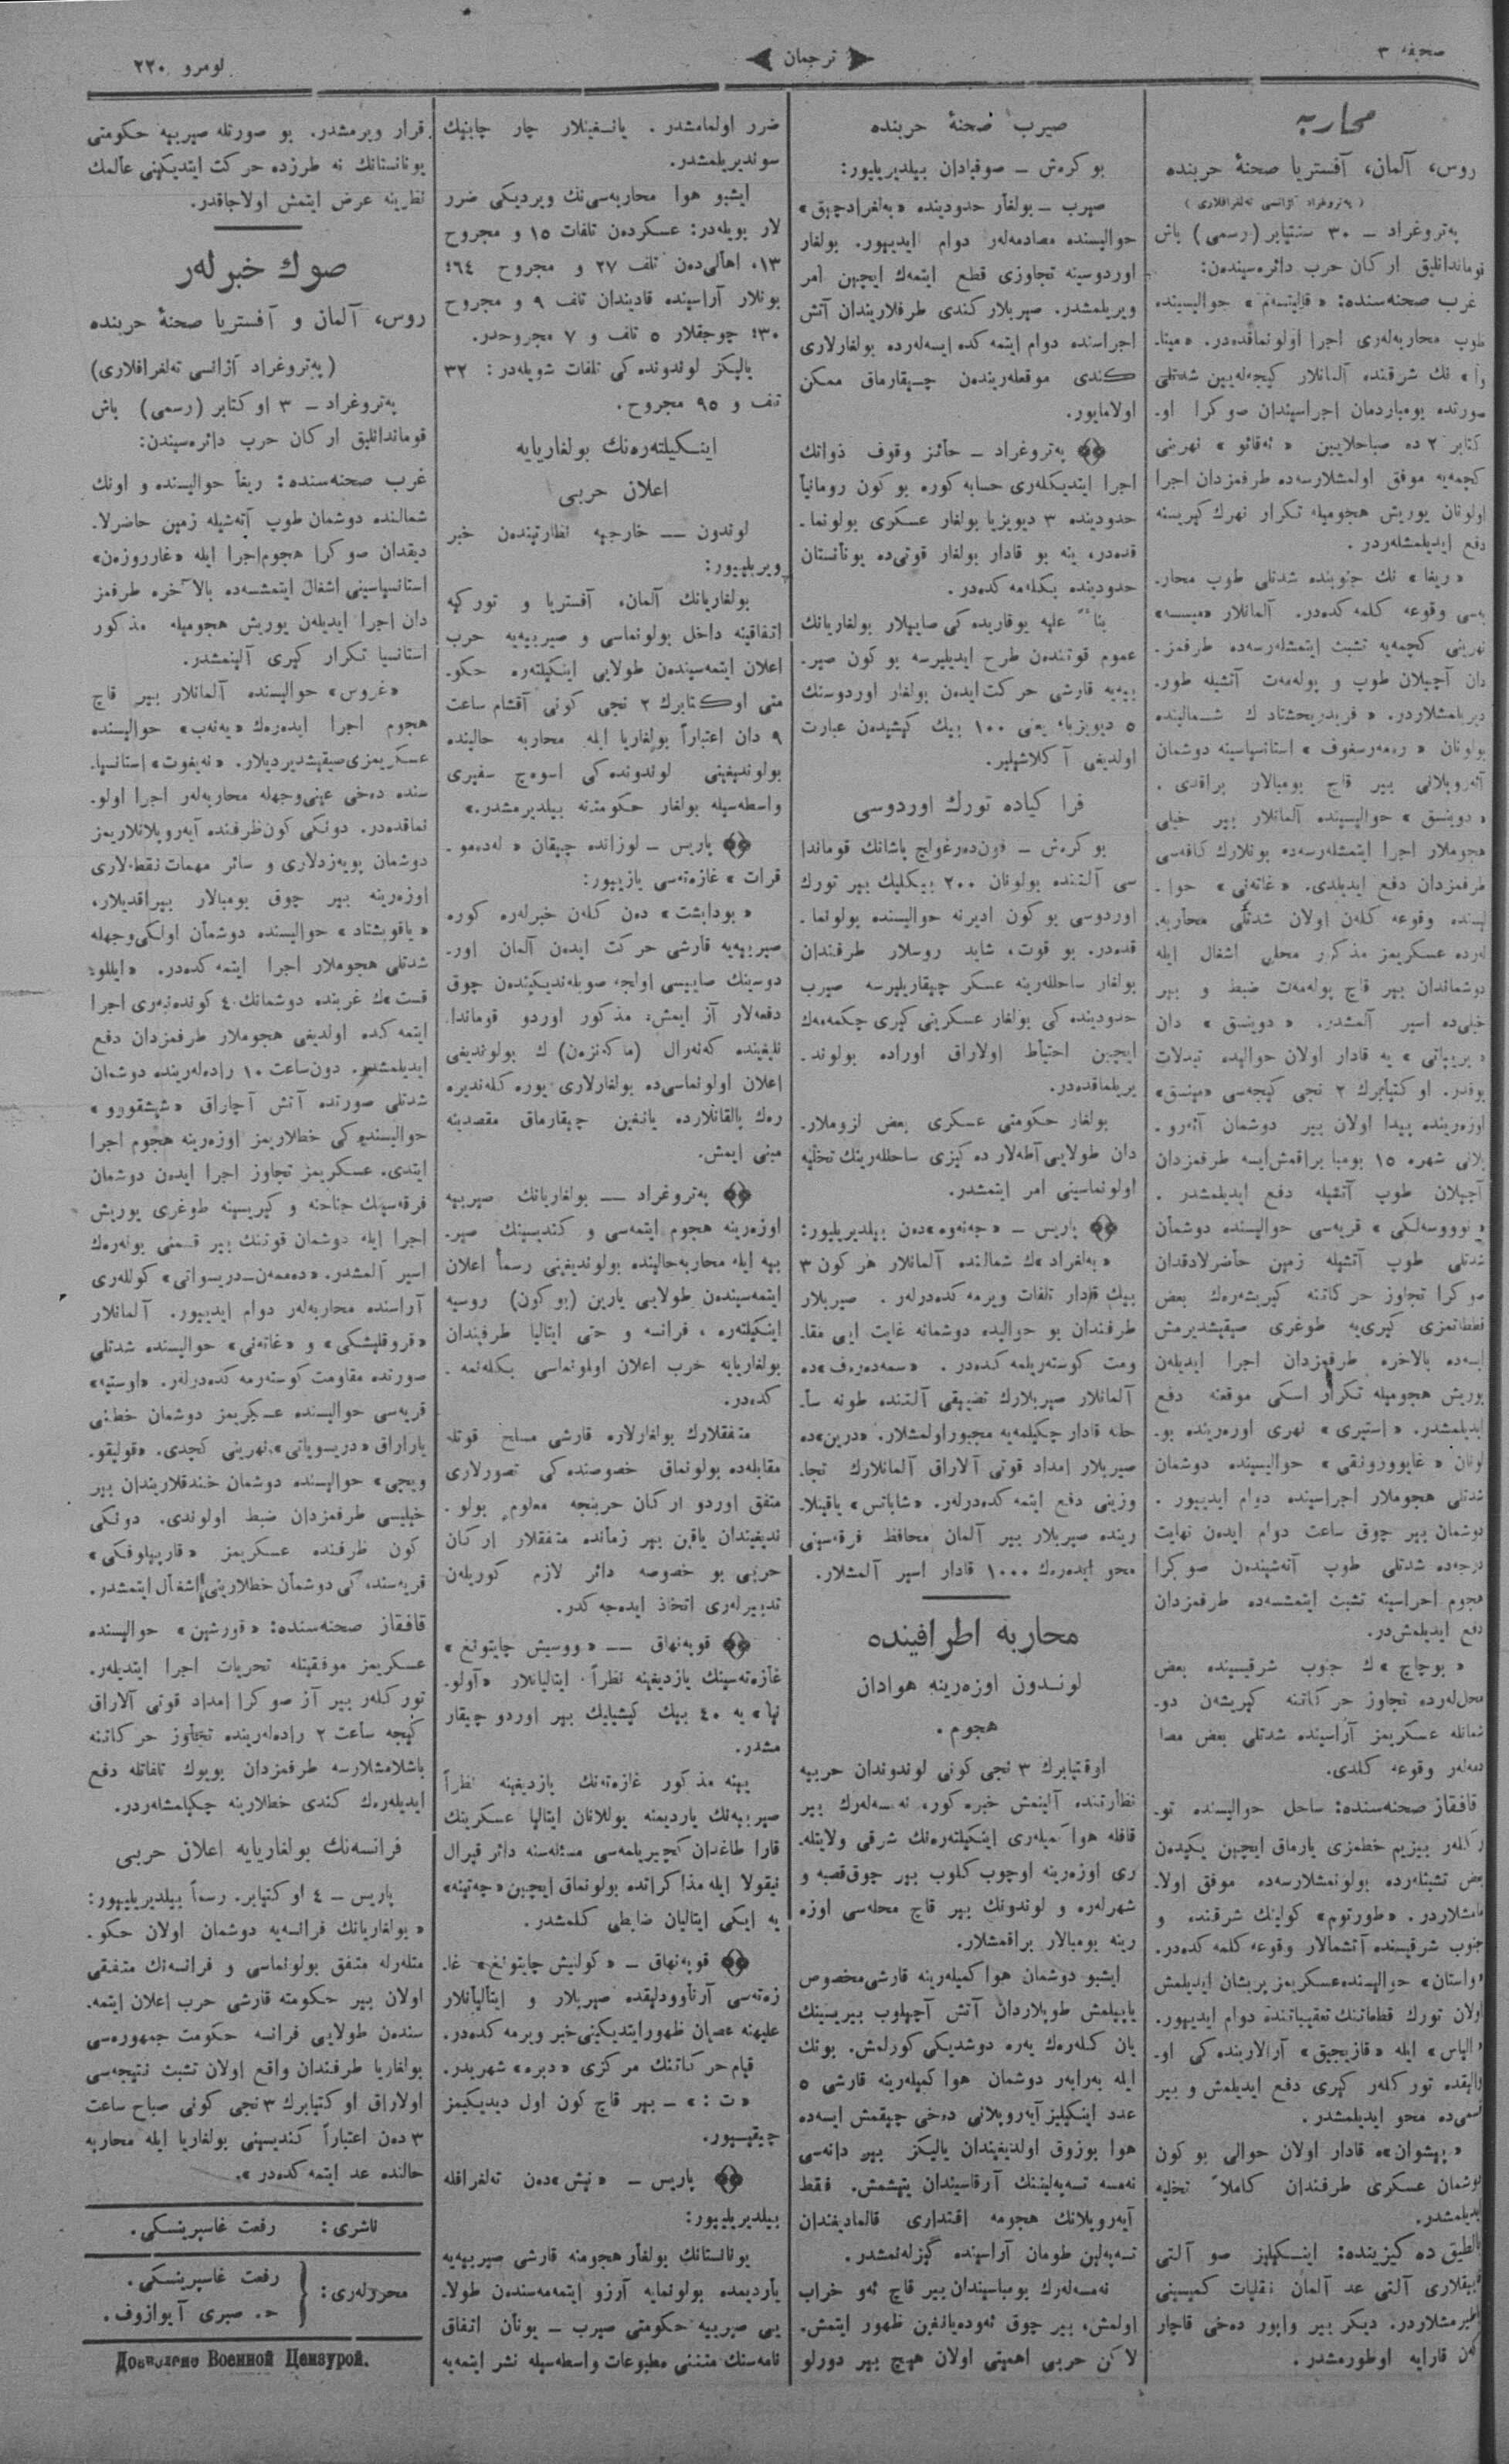 صحیفه ۳
ترجمان
نومرو ۲۲۰
محاربه
روس، آلمان، آفستریا صحنۀ حربنده
( پەتروغراد آژانسی تەلغرافلاری )
پەتروغراد – ۳۰ سنتیابر (رسمی) باش
قوماندانلیق ارکان حرب دائرەسیندن:
غرب صحنەسنده: حوالیسینده
طوب محاربەلەری اجرا اولونماقدەدر.
نك شرقنده آلمانلار کیجەلەیین شدتلی
صورتده بومباردمان اجراسیندن صوکرا او-
کتابر ۲ ده صباحلایین نهرینی
کچمەیه موفق اولمشلارسەده طرفمزدان اجرا
اولونان یوریش هجومیله تکرار نهرك کیریسنه
دفع ایدیلمشلەردر.
« ریغا » نك جنوبنده شدتلی طوب محار-
بەسی وقوعه کلمەکدەدر. آلمانلار «میسسه»
نهرینی کچمەیه تشبث ایتمشلەرسەده طرفمز-
دان آچیلان طوب و پولەمەت آتشیله طور-
دیریلمشلاردر. « فریدریحشتاد ك شمالینده
بولونان استانسیاسینه دوشمان
آئەروپلانی بیر قاچ بومبالار براقدی.
« دوینسق » حوالیسینده آلمانلار بیر خیلی
هجوملار اجرا ایتمشلەرسەده بونلارك کافەسی
طرفمزدان دفع ایدیلدی. «غاتەنی» حوا-
لیسنده وقوعه کلەن اولان شدتلی محاربه-
لەرده عسکریمز مذکور محلی اشغال ایله
دوشماندان بیر قاچ پولەمەت ضبط و بیر
خیلیده اسیر آلمشدر. « دوینسق » دان
« پریپاتی » یه قادار اولان حوالیده تبدلات
یوقدر. اوکتیابرك ۲ نجی کیجەسی «مینسق»
اوزەرینده پیدا اولان بیر دوشمان آئەرو-
پلانی شهره ۱۵ بومبا براقمش ایسه طرفمزدان
آچیلان طوب آتشیله دفع ایدیلمشدر.
« نوووسەلکی » قریەسی حوالیسنده دوشمان
شدتلی طوب آتشیله زمین حاضرلادقدان
صوکرا تجاوز حرکاتنه کیریشەرەك بعض
قطعاتمزی کیریيه طوغری صیقیشدیرمش
ایسەده بالاخره طرفمزدان اجرا ایدیلەن
یوریش هجومیله تکرار اسکی موقعنه دفع
ایدیلمشدر. «استیری» نهری اوزەرینده بو-
لونان حوالیسینده دوشمان
شدتلی هجوملار اجراسینده دوام ایدییور.
دوشمان بیر چوق ساعت دوام ایدەن نهایت
درجەده شدتلی طوب آتەشیندن صوکرا
هجوم اجراسینه تشبث ایتمشسەده طرفمزدان
دفع ایدیلمشدر.
« بوچاچ »ك جنوب شرقیسینده بعض
محللەرده تجاوز حرکاتنه کیریشەن دو-
شمانله عسکریمز آراسینده شدتلی بعض مصا
دمەلەر وقوعه کلدی.
قافقاز صحنەسنده: ساحل حوالیسنده تو-
رکلەر بیزیم خطمزی یارماق ایچین یکیدەن
بعض تشبثلەرده بولونمشلارسەده موفق اولا-
مامشلاردر. «طورتوم» کولینك شرقنده و
جنوب شرقیسنده آتشمالار وقوعه کلمەکدەدر.
«واستان» حوالیسنده عسکریمز پریشان ایدیلمش
اولان تورك قطعاتنك تعقیباتنده دوام ایدییور.
ایله «قازیجیق» آرالارینده کی او-
والیقده تورکلەر کیری دفع ایدیلمش و بیر
قسمی ده محو ایدیلمشدر.
قادار اولان حوالی بو کون
دوشمان عسکری طرفندان کاملاً تخلیه
ایدیلمشدر.
بالطیق دەکیزینده: اینکیلیز صو آلتی
قاییقلاری آلتی عدد آلمان نقلیات کمیسینی
باطیرمشلاردر. دیکر بیر واپور دەخی قاچار
کەن قارایه اوطورمشدر.
صیرب صحنۀ حربنده
بوکرەش – صوفیادان بیلدیریلیور:
صیرب – بولغار حدودینده «بەلغرادچیق»
حوالیسنده مصادمەلەر دوام ایدییور. بولغار
اوردوسینه تجاوزی قطع ایتمەك ایچین امر
ویریلمشدر. صیربلار کندی طرفلاریندان آتش
اجراسنده دوام ایتمەکده ایسەلەرده بولغارلاری
کندی موقعلەریندەن چیقارماق ممکن
اولامایور.
پەتروغراد – حائز وقوف ذواتك
اجرا ایتدیکلەری حسابه کوره بوکون رومانیا
حدودینده ۳ دیویزیا بولغار عسکری بولونما-
قدەدر، ینه بو قادار بولغار قوتی ده یونانستان
حدودینده بکلەمەکدەدر.
بناءً علیه یوقاریده کی صاییلار بولغاریانك
عموم قوتندن طرح ایدیلیرسه بو کون صیر-
بیەیه قارشی حرکت ایدەن بولغار اوردوسنك
۵ دیویزیا، یعنی ۱۰۰ بیك کیشیدەن عبارت
اولدیغی آکلاشیلیر.
فراکیاده تورك اوردوسی
بوکرەش – فون دەرغولچ پاشانك قوماندا
سی آلتنده بولونان ۲۰۰ بیکلیك بیر تورك
اوردوسی بوکون ادیرنه حوالیسنده بولونما-
قدەدر. بو قوت، شاید روسلار طرفندان
بولغار ساحللەرینه عسکر چیقاریلیرسه صیرب
حدودینده کی بولغار عسکرینی کیری چکمەمەك
ایچین احتیاط اولاراق اوراده بولوند-
یریلماقدەدر.
بولغار حکومتی عسکری بعض لزوملار-
دان طولایی آطەلار دەکیزی ساحللەرینك تخلیه
اولونماسینی امر ایتمشدر.
پاریس – «جەنەوه»دەن بیلدیریلیور:
«بەلغراد»ك شمالنده آلمانلار هر کون ۳
بیك قادار تلفات ویرمەکدەدرلەر. صیربلار
طرفندان بو حوالیده دوشمانه غایت ایی مقا-
ومت کوستەریلمەکدەدر. «سمەدەرەف»ده
آلمانلار صیربلارك تضییقی آلتنده طونه سا-
حلنه قادار چکیلمەیه مجبور اولمشلار. «درین»ده
صیربلار امداد قوتی آلاراق آلمانلارك تجا-
وزینی دفع ایتمەکدەدرلەر. «شاباتس» یاقینلا-
رینده صیربلار بیر آلمان محافظ فرقەسینی
محو ایدەرەك ۱۰۰۰ قادار اسیر آلمشلار.
محاربه اطرافینده
لوندون اوزەرینه هوادان
هجوم.
اوقتیابرك ۳ نجی کونی لوندوندان حربیه
نظارتنده آلینمش خبره کوره، نەمسەلەرك بیر
قافله هوا کمیلەری اینکیلتەرەنك شرقی ولایتلە-
ری اوزەرینه اوچوب کلوب بیر چوق قصبه و
شهرلەره و لوندونك بیر قاچ محلەسی اوزە
رینه بومبالار براقمشلار.
ایشبو دوشمان هوا کمیلەرینه قارشی مخصوص
یاپیلمش طوپلاردان آتش آچیلوب بیریسینك
یان کلەرەك یەره دوشدیکی کورلمش. بونك
ایله بەرابەر دوشمان هوا کمیلەرینه قارشی ۵
عدد اینکیلیز آیەروپلانی دەخی چیقمش ایسەده
هوا بوزوق اولدیغیندان یالیکز بیر دانەسی
نەمسه تسەپەلیننك آرقاسیندان یتیشمش. فقط
آیەروپلانك هجومه اقتداری قالمادیغندان
تسەپەلین طومان آراسینده گیزلەنمشدر.
نەمسەلەرك بومباسیندان بیر قاچ ئەو خراب
اولمش، بیر چوق ئەوده یانغین ظهور ایتمش.
لاکن حربی اهمیتی اولان هیچ بیر دورلو
ضرر اولمامشدر. یانغینلار چار چابیك
سوندیریلمشدر.
ایشبو هوا محاربەسی نك ویردیکی ضرر
لار بویلەدر: عسکردەن تلفات ۱۵ و مجروح
۱۳، اهالیدەن تلف ۲۷ و مجروح ۶۴؛
بونلار آراسینده قادیندان تلف ۹ و مجروح
۳۰؛ چوجقلار ۵ تلف و ۷ مجروحدر.
یالیکز لوندوندەکی تلفات شویلەدر: ۳۲
تلف و ۹۵ مجروح.
اینکیلتەرەنك بولغاریایه
اعلان حربی
لوندون — خارجیه نظارتیندەن خبر
ویریلییور:
بولغاریانك آلمان، آفستریا و تورکیه
اتفاقینه داخل بولونماسی و صیربیەیه حرب
اعلان ایتمەسیندەن طولایی اینکیلتەره حکو-
متی اوکتابرك ۲ نجی کونی آقشام ساعت
۹ دان اعتباراً بولغاریا ایله محاربه حالینده
بولوندیغینی لوندوندەکی اسوەچ سفیری
واسطەسیله بولغار حکومتنه بیلدیرمشدر.»
پاریس – لوزانده چیقان « لەدەمو-
قرات » غازەتەسی یازییور:
« بوداپشت » دەن کلەن خبرلەره کوره
صیربیەیه قارشی حرکت ایدەن آلمان اور-
دوسینك صاییسی اولجه صویلەندیکیندەن چوق
دفعەلار آز ایمش؛ مذکور اوردو قوماندا
نلیغینده کەنەرال (ماکەنزەن) ك بولوندیغی
اعلان اولونماسی ده بولغارلاری یورەکلەندیرە
رەك بالقانلارده یانغین چیقارماق مقصدینه
مبنی ایمش.
پەتروغراد — بولغاریانك صیربیه
اوزەرینه هجوم ایتمەسی و کندیسینك صیر-
بیه ایله محاربه حالینده بولوندیغینی رسماً اعلان
ایتمەسیندەن طولایی یارین (بوکون) روسیه
اینکیلتەره، فرانسه و حتی ایتالیا طرفیندان
بولغاریایه حرب اعلان اولونماسی بکلەنمە-
کدەدر.
متفقلارك بولغارلاره قارشی مسلح قوتله
مقابلەده بولونماق خصوصندەکی تصورلاری
متفق اوردو ارکان حربنجه معلوم بولو-
ندیغیندان یاقین بیر زمانده متفقلار ارکان
حربی بو خصوصه دائر لازم کوریلەن
تدبیرلەری اتخاذ ایدەجەکدر.
قوپەنهاق — «ووسیش چایتونغ»
غازەتەسینك یازدیغینه نظراً ایتالیانلار «آولو-
نیا» یه ۴۰ بیك کیشیلیك بیر اوردو چیقار
مشدر.
یینه مذکور غازەتەنك یازدیغینه نظراً
صیربیەنك یاردیمنه یوللانان ایتالیا عسکرینك
قارا طاغدان کچیریلمەسی مسئلەسنه دائر قیرال
نیقولا ایله مذاکراتده بولونماق ایچین «چەتینه»
یه ایکی ایتالیان ضابطی کلمشدر.
قوپەنهاق – «کولنیش چایتونغ» غا-
زەتەسی آرناوودلیقده صیربلار و ایتالیانلار
علیهنه عصیان ظهور ایتدیکینی خبر ویرمەکدەدر.
قیام حرکاتنك مرکزی «دبره» شهریدر.
«ت:» – بیر قاچ کون اول دیدیکیمز
چیقیییور.
پاریس – «نیش»دەن تەلغرافله
بیلدیریلییور:
یونانستانك بولغار هجومنه قارشی صیربیەیه
یاردیمده بولونمایه آرزو ایتمەمەسندەن طولا-
یی صیربیه حکومتی صیرب – یونان اتفاق
نامەسنك متننی مطبوعات واسطەسیله نشر ایتمەیه
قرار ویرمشدر. بو صورتله صیربیه حکومتی
یونانستانك نه طرزده حرکت ایتدیکینی عالمك
نظرینه عرض ایتمش اولاجاقدر.
صوك خبرلەر
روس، آلمان و آفستریا صحنۀ حربنده
(پەتروغراد آژانسی تەلغرافلاری)
پەتروغراد – ۳ اوکتابر (رسمی) باش
قوماندانلیق ارکان حرب دائرەسیندن:
غرب صحنەسنده: ریغا حوالیسنده و اونك
شمالنده دوشمان طوب آتەشیله زمین حاضرلا-
دیقدان صوکرا هجوم اجرا ایله «غارروزەن»
استانسیاسینی اشغال ایتمشسەده بالآخره طرفمز
دان اجرا ایدیلەن یوریش هجومیله مذکور
استانسیا تکرار کیری آلینمشدر.
«غروس» حوالیسنده آلمانلار بیر قاچ
هجوم اجرا ایدەرەك حوالیسنده
عسکریمزی صیقیشدیردیلار. استانسیا-
سنده دەخی عینی وجهله محاربەلەر اجرا اولو-
نماقدەدر. دونکی کون ظرفنده آیەروپلانلاریمز
دوشمان پویەزدلاری و سائر مهمات نقطەلاری
اوزەرینه بیر چوق بومبالار بیراقدیلار.
«یاقوبشتاد» حوالیسنده دوشمان اولکی وجهله
شدتلی هجوملار اجرا ایتمەکدەدر. «ایللو-
قست»ك غربنده دوشمانك ۴ کوندەنبەری اجرا
ایتمەکده اولدیغی هجوملار طرفمزدان دفع
ایدیلمشدر. دون ساعت ۱۰ رادەلەرینده دوشمان
شدتلی صورتده آتش آچاراق
حوالیسندەکی خطلاریمز اوزەرینه هجوم اجرا
ایتدی. عسکریمز تجاوز اجرا ایدەن دوشمان
فرقەسینك جناحنه و کیریسینه طوغری یوریش
اجرا ایله دوشمان قوتنك بیر قسمنی بولەرەك
اسیر آلمشدر. «دەممەن–دریسواتی» کوللەری
آراسنده محاربەلەر دوام ایدییور. آلمانلار
و «غاتەنی» حوالیسنده شدتلی
صورتده مقاومت کوستەرمەکدەدرلەر.
قریەسی حوالیسنده عسکریمز دوشمان خطنی
یاراراق نهرینی کچدی. «قولیقو-
ویچی» حوالیسنده دوشمان خندقلاریندان بیر
خیلیسی طرفمزدان ضبط اولوندی. دونکی
کون ظرفنده عسکریمز
قریەسندەکی دوشمان خطلارینی اشغال ایتمشدر.
قافقاز صحنەسنده: حوالیسنده
عسکریمز موفقیتله تحریات اجرا ایتدیلەر.
تورکلەر بیر آز صوکرا امداد قوتی آلاراق
کیجه ساعت ۲ رادەلەرینده تجاوز حرکاتنه
باشلامشلارسه طرفمزدان بویوك تلفاتله دفع
ایدیلەرەك کندی خطلارینه چکیلمشلەردر.
فرانسەنك بولغاریایه اعلان حربی
پاریس – ۴ اوکتیابر. رسماً بیلدیریلییور:
« بولغاریانك فرانسەیه دوشمان اولان حکو-
متلەرله متفق بولونماسی و فرانسەنك متفقی
اولان بیر حکومته قارشی حرب اعلان ایتمە-
سندەن طولایی فرانسه حکومت جمهورەسی
بولغاریا طرفندان واقع اولان تشبث نتیجەسی
اولاراق اوکتیابرك ۳ نجی کونی صباح ساعت
۳ دەن اعتباراً کندیسینی بولغاریا ایله محاربه
حالنده عد ایتمەکدەدر».
ناشری: رفعت غاسپرینسکی.
محررلەری: رفعت غاسپرینسکی.
ح. صبری آیوازوف.
Дозволено Военной Цензурой.